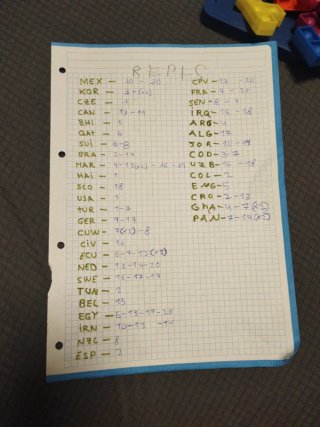 REPIC
MEX - 10 - 20
KOR -
CZE - 1
CAN - 12 - 19
BHI - 5
QAT - 6
SUI - 6-8
BRA - 2-17
MAR -
HAI - 1
SCO - 18
USA - 1
TUR - 1-7
GER - 9-19
CUW - 7(x2) - 8
CIV - 16
ECU - 6-9-12(x2)
NED - 12-14-20
SWE - 15-17-19
TUN - 2
BEL - 15
EGY - 6-13-19-20
IRN - 10-12 -14
NZL - 8
ESP - 2
CPV - 17 - 20
FRA - 9 - 20
SEN - 8 - 9
IRQ - 15 - 18
ARG - 4
ALG - 17
JOR - 10 - 19
COD - 3-7
UZB - 16 - 18
COL - 2
ENG - 5
CRO - 2 - 13
GHA - 4 - 7(x2)
PAN - 7-14(x2)